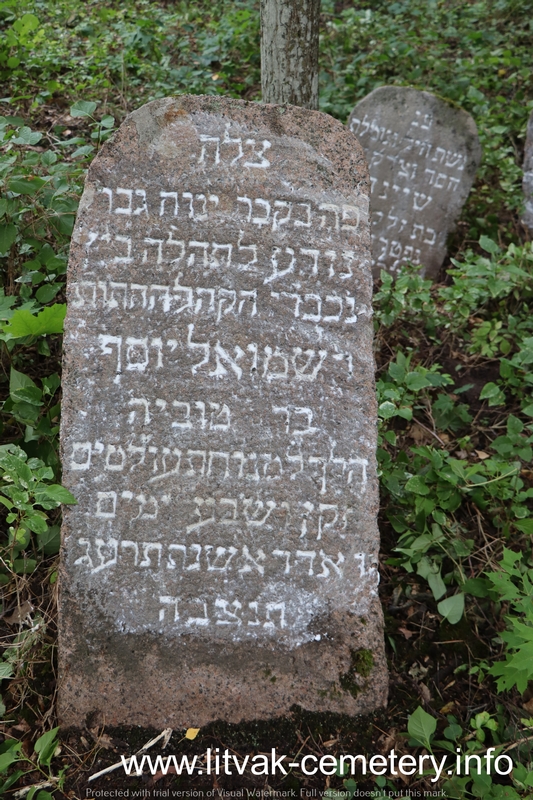 צלה
פה נקבר ינוח גבר
נודע לתהלה בין
נכבדי הקהל החתות
ר׳ שמואל יוסף
בר טוביה
הלך למנוחת עולמים
זקן ושבע ימים
ו׳ אדר א׳ שנת תרעג
תנצבה
פנ
אשת
חסד
נפט
www.litvak-cemetery.info
Protected with trial version of Visual Watermark. Full version doesn't put this mark.